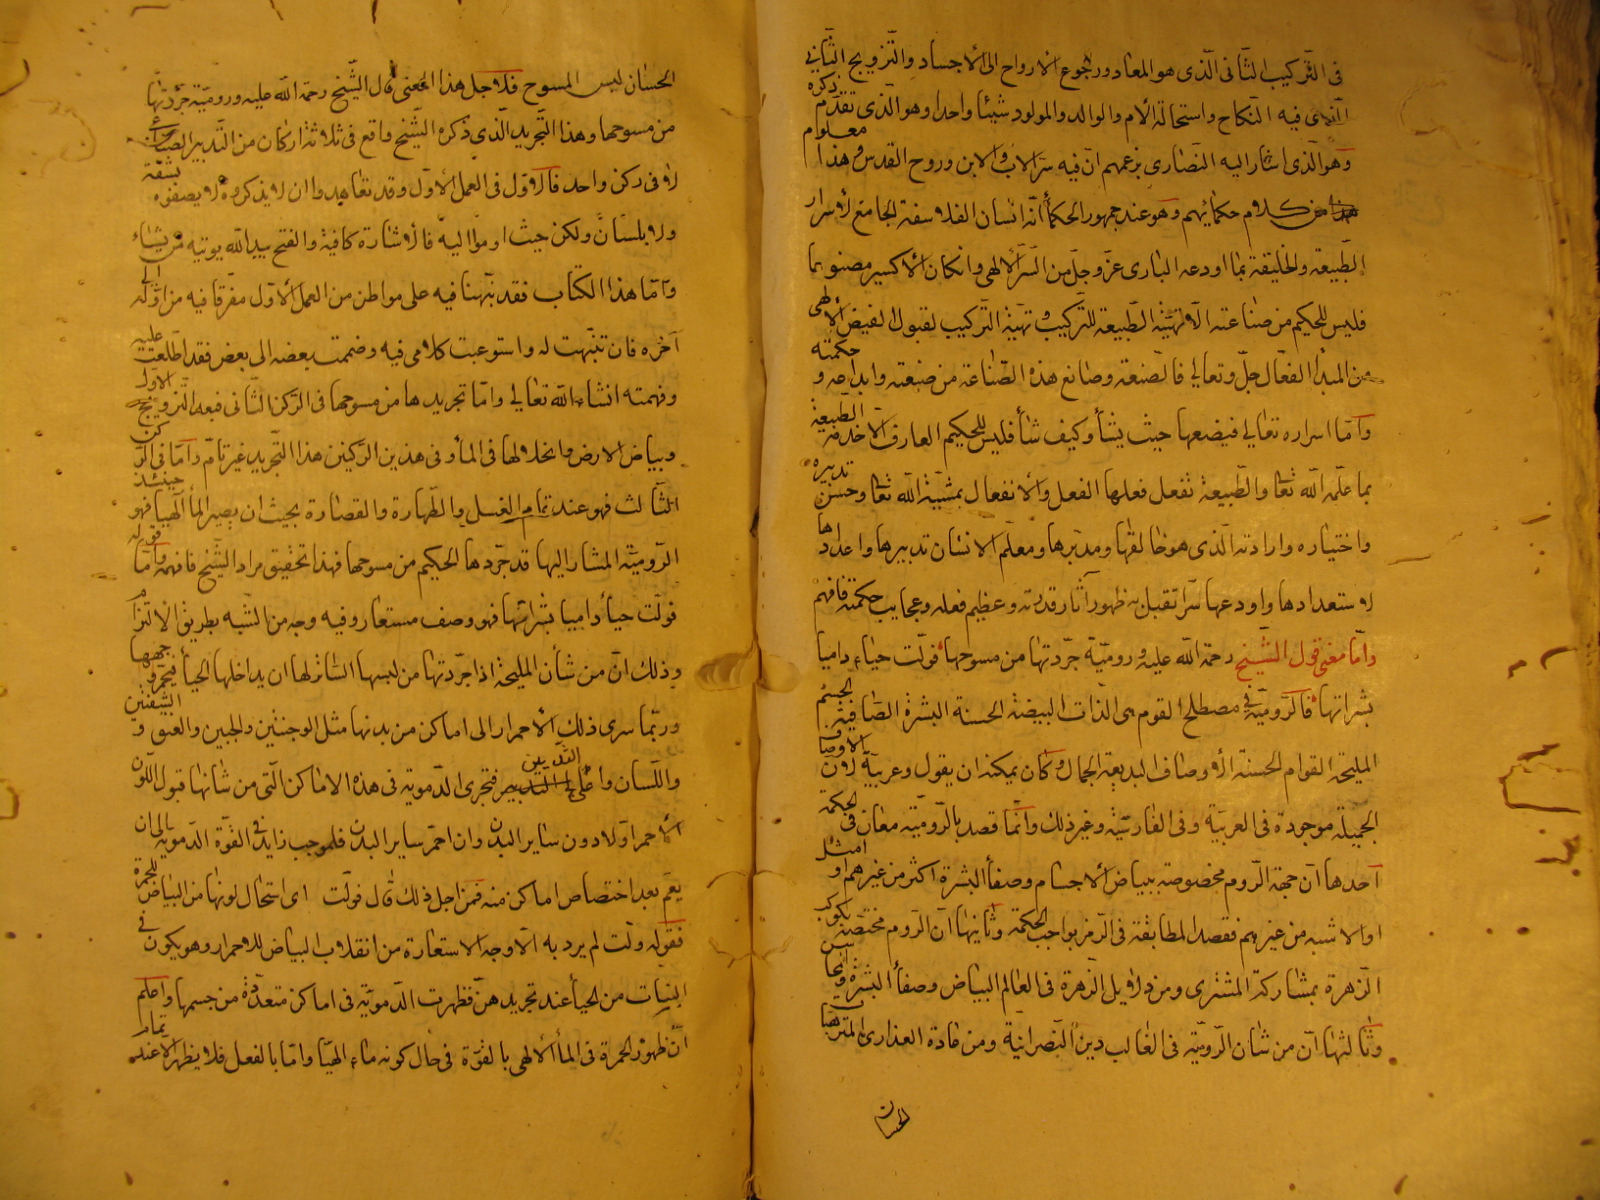 فى التّركيب الثّانى الّذى هو المعاد ورجوع الارواح الى الأجساد والتّزويج الثّانى
الّذى فيه النّكاح واستحالة الأم والوالد والمولود شيئا واحدا وهو الّذى تقدّم ذكره
وهو الّذى اشار اليه النّصارى بزعمهم انّ فيه سرّ الاب والابن وروح القدس وهذا معلوم
من كلام حكمائهم وهو عند جمهور الحكماء أنّه انسان الفلاسفة الجامع لأسرار
الطّبيعة والخليقة بما اودعه البارى عزّ وجلّ من السّرّ الألهى وانكان الأكسير مصنوعا
فليس للحكيم من صناعته الّا تهيّئة الطّبيعة للتّركيب وتهيّة التّركيب لقبول الفيض الألهى
من المبدأ الفعّال جلّ وتعالى فالصّنعة وصانع هذه الصّناعة من صنعته وابداعه و حكمته
وامّا اسراره تعالى فيضعها حيث يشأ وكيف شأ فليس للحكيم العارف الّا خدمة الطّبيعة
بما علّمه اللّه تعا والطّبيعة تفعل فعلها الفعل والأنفعال بمشيّة اللّه تعا وحسن تدبيره
واختياره وارادته الّذى هو خالقها ومدبّرها ومعلّم الانسان تدبيرها واعدادها
لاستعدادها واودعها سرّا تقبل به ظهور آثار قدرته وعظيم فعله وعجايب حكمته فافهم
وامّا معنى قول الشّيخ رحمة اللّه عليه وروميّة جرّدتها من مسوحها فولّت حياء داميا
بشراتها فالرّوميّة فى مصطلح القوم هى الذّات البيضة الحسنة البشرة الصّافية الجسم
المليحة القوام الحسنة الأوصاف البديعة الجمال وكان يمكنه ان يقول وعربيّة لان الاوصاف
الجميلة موجودة فى العربيّة وفى الفارسيّة وغير ذلك وانّما قصد بالرّوميّة معان فى الحكمة
احدها انّ جهة الرّوم مخصوصة ببياض الأجسام وصفأ البشرة اكثر من غيرهم او امثل
او الاشبه من غيرهم فقصد المطابقة فى الرّمز بواجب الحكمة وثانيها انّ الرّوم مختصّة بكوكب
الزّهرة بمشاركة المشترى ومن دلايل الزّهرة فى العالم البياض وصفأ البشرة
وثالثها انّ من شان الرّوميّة فى الغالب دين النّصرانيّة ومن عادة العذارى المترهبات
الحسان
الحسان لبس المسوح فلاجل هذا المعنى قال الشّيخ رحمة اللّه عليه وروميّة جرّدتها
من مسوحها وهذا التّجريد الّذى ذكره الشّيخ واقع فى ثلاثة اركان من التّدبير الصّناعى
لا فى ركن واحد فالاوّل فى العمل الأوّل وقد تعاهدوا ان لا يذكروه ولا يصفوه بشفّة
ولا بلسان ولكن حيث اومؤا اليه فالاشارة كافية والفتح بيد اللّه يوتيه من يشاء
وامّا هذا الكتاب فقد نبّهنا فيه على مواطن من العمل الأوّل مفرّقا فيه من اوّله الى
آخره فان تنبّهت له واستوعبت كلامى فيه وضممت بعضه الى بعض فقد اطّلعت عليه
وفهمته انشاء اللّه تعالى وامّا تجريدها من مسوحها فى الرّكن الثّانى فبعد التّزويج الاوّل
وبياض الارض وانحلالها فى المأ وفى هذين الرّكنين هذا التّجريد غير تامّ وامّا فى الرّكن
الثّالث فهو عند تمام الغسل والطّهارة والقصارة بحيث ان يصير المأ الهيا فهو حينئذ
الرّوميّة المشار اليها قد جرّدها الحكيم من مسوحها فهذا تحقيق مراد الشّيخ فافهمه وامّا قوله
فولّت حيأ داميا بشراتها فهو وصف مستعار وفيه وجه من الشّبه بطريق الالتزام
وذلك انّ من شأن المليحة اذا جرّدتها من لبسها السّاتر لها ان يداخلها الحيأ فيحمرّ وجهها
وربّما سرى ذلك الأحمرار الى اماكن من بدنها مثل الوجنتين والجبين والعنق و الشّفتين
واللّسان واعلى الثّديين فتجرى الدّمويّة فى هذه الاماكن الّتى من شانها قبول اللّون
الأحمر اوّلا دون ساير البدن وان احمرّ ساير البدن فلموجب زايد فى القوّة الدّمويّة الى ان
يعمّ بعد اختصاص اماكن منه فمن اجل ذلك قال فولّت اى استحال لونها من البياض للحمرة
فقوله ولّت لم يرد به الّا وجه الاستعارة من انقلاب البياض للاحمرار وهو يكون فى
البنيات من الحيأ عند تجريدهنّ فظهرت الدّمويّة فى اماكن متعدّدة من جسمها واعلم
انّ ظهور الحمرة فى المأ الألهى بالقوّة فى حال كونه ماء الهيّا وامّا بالفعل فلا يظهر الّا عند تمام